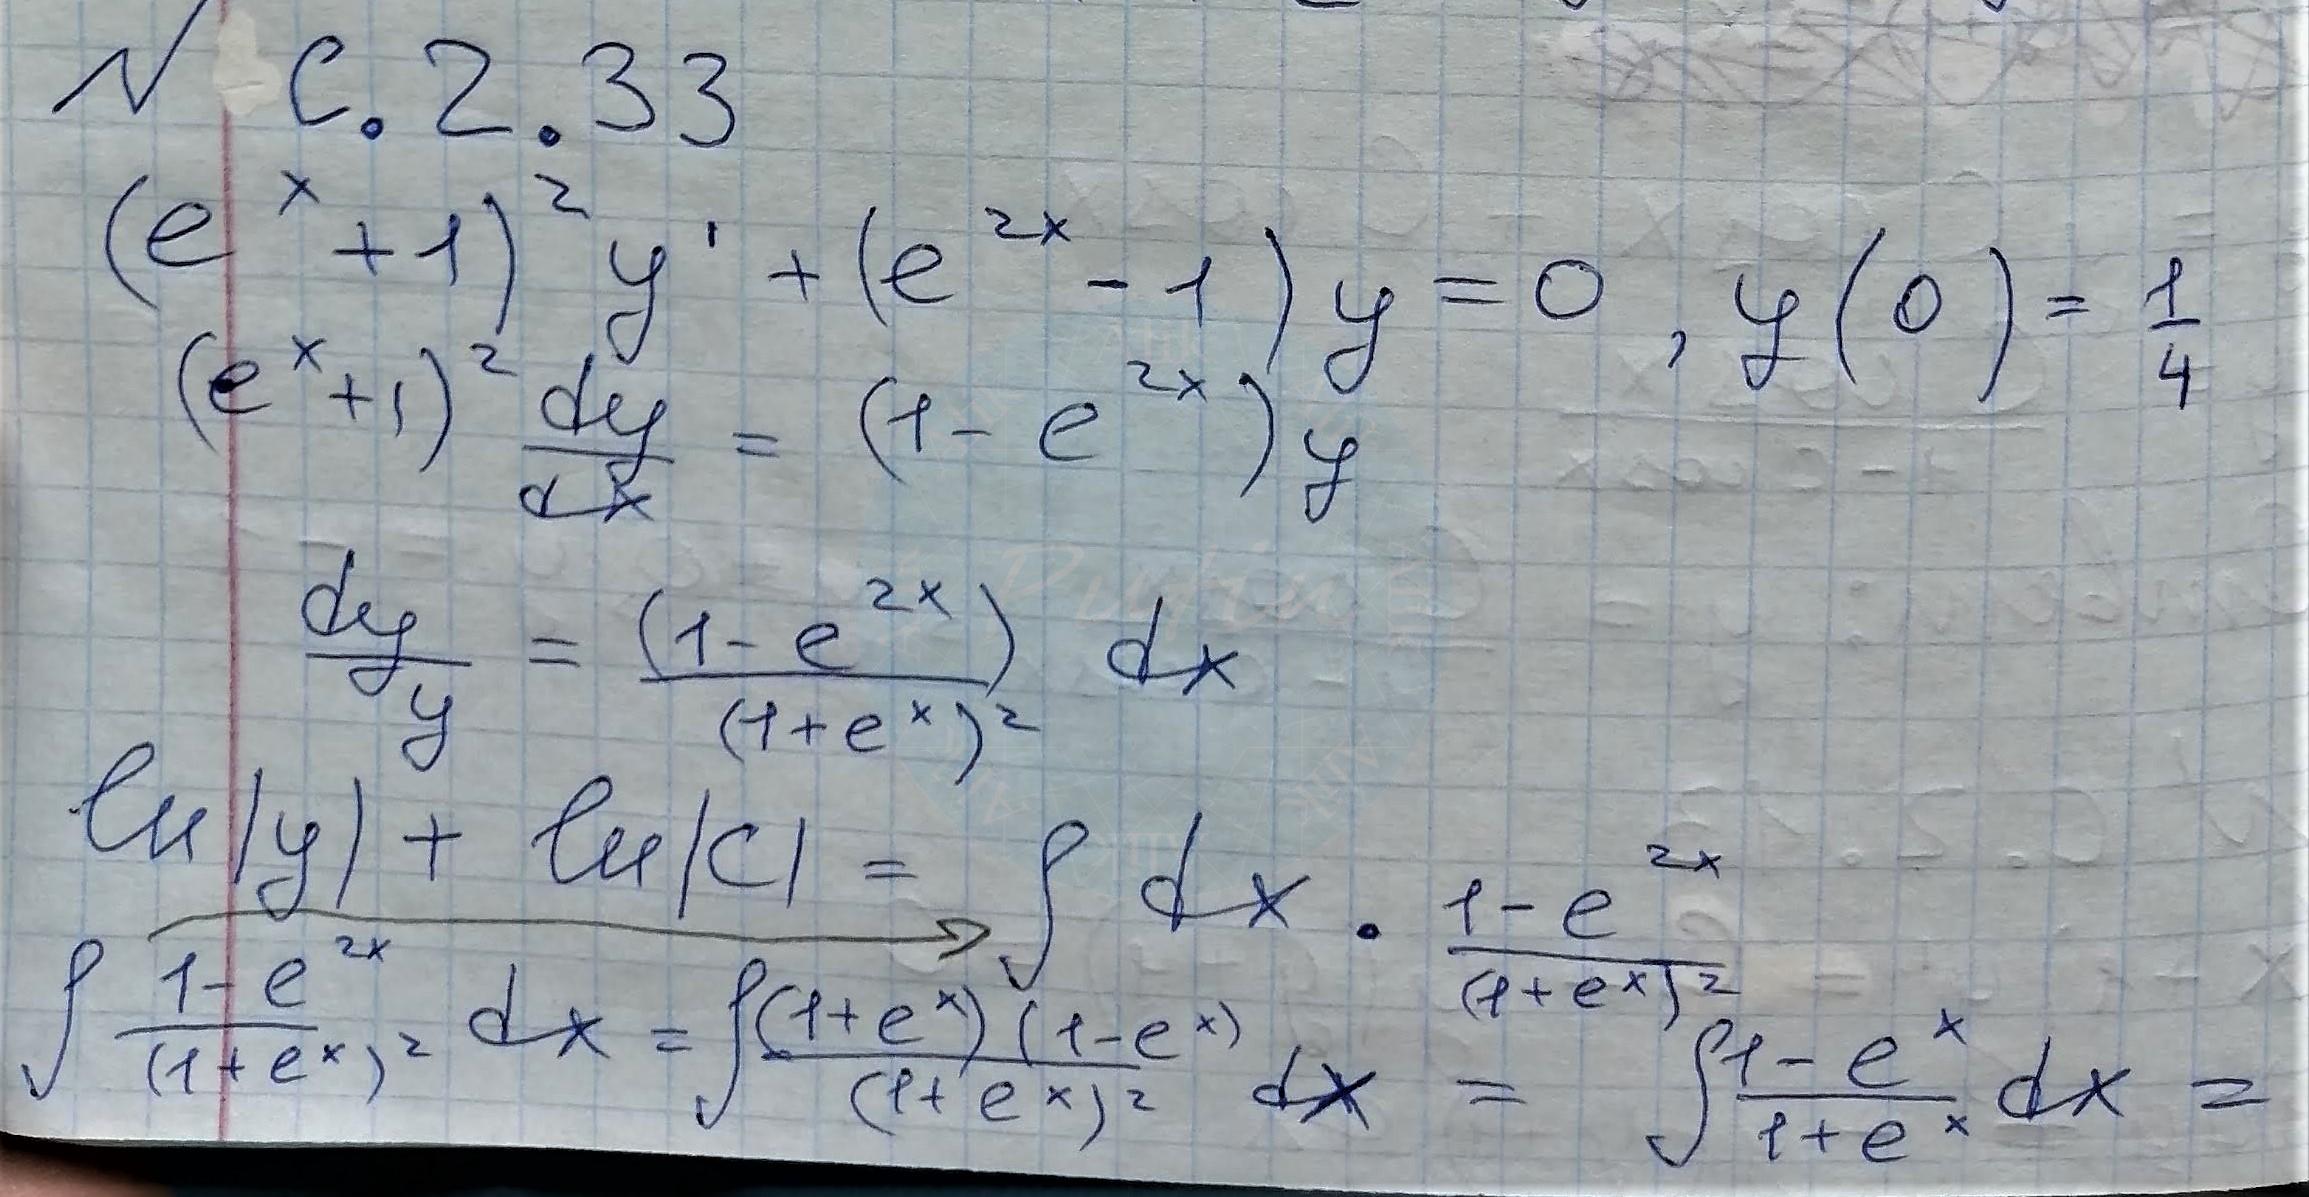 № С.2.33
(e^x + 1)^2 y' + (e^{2x} - 1) y = 0, y(0) = 1/4
(e^x + 1)^2 dy/dx = (1 - e^{2x}) y
dy/y = (1 - e^{2x})/(1 + e^x)^2 dx
ln|y| + ln|C| = ∫ dx · 1 - e^{2x}/(1 + e^x)^2
∫ 1 - e^{2x}/(1 + e^x)^2 dx = ∫ (1 + e^x)(1 - e^x)/(1 + e^x)^2 dx = ∫ 1 - e^x/1 + e^x dx =